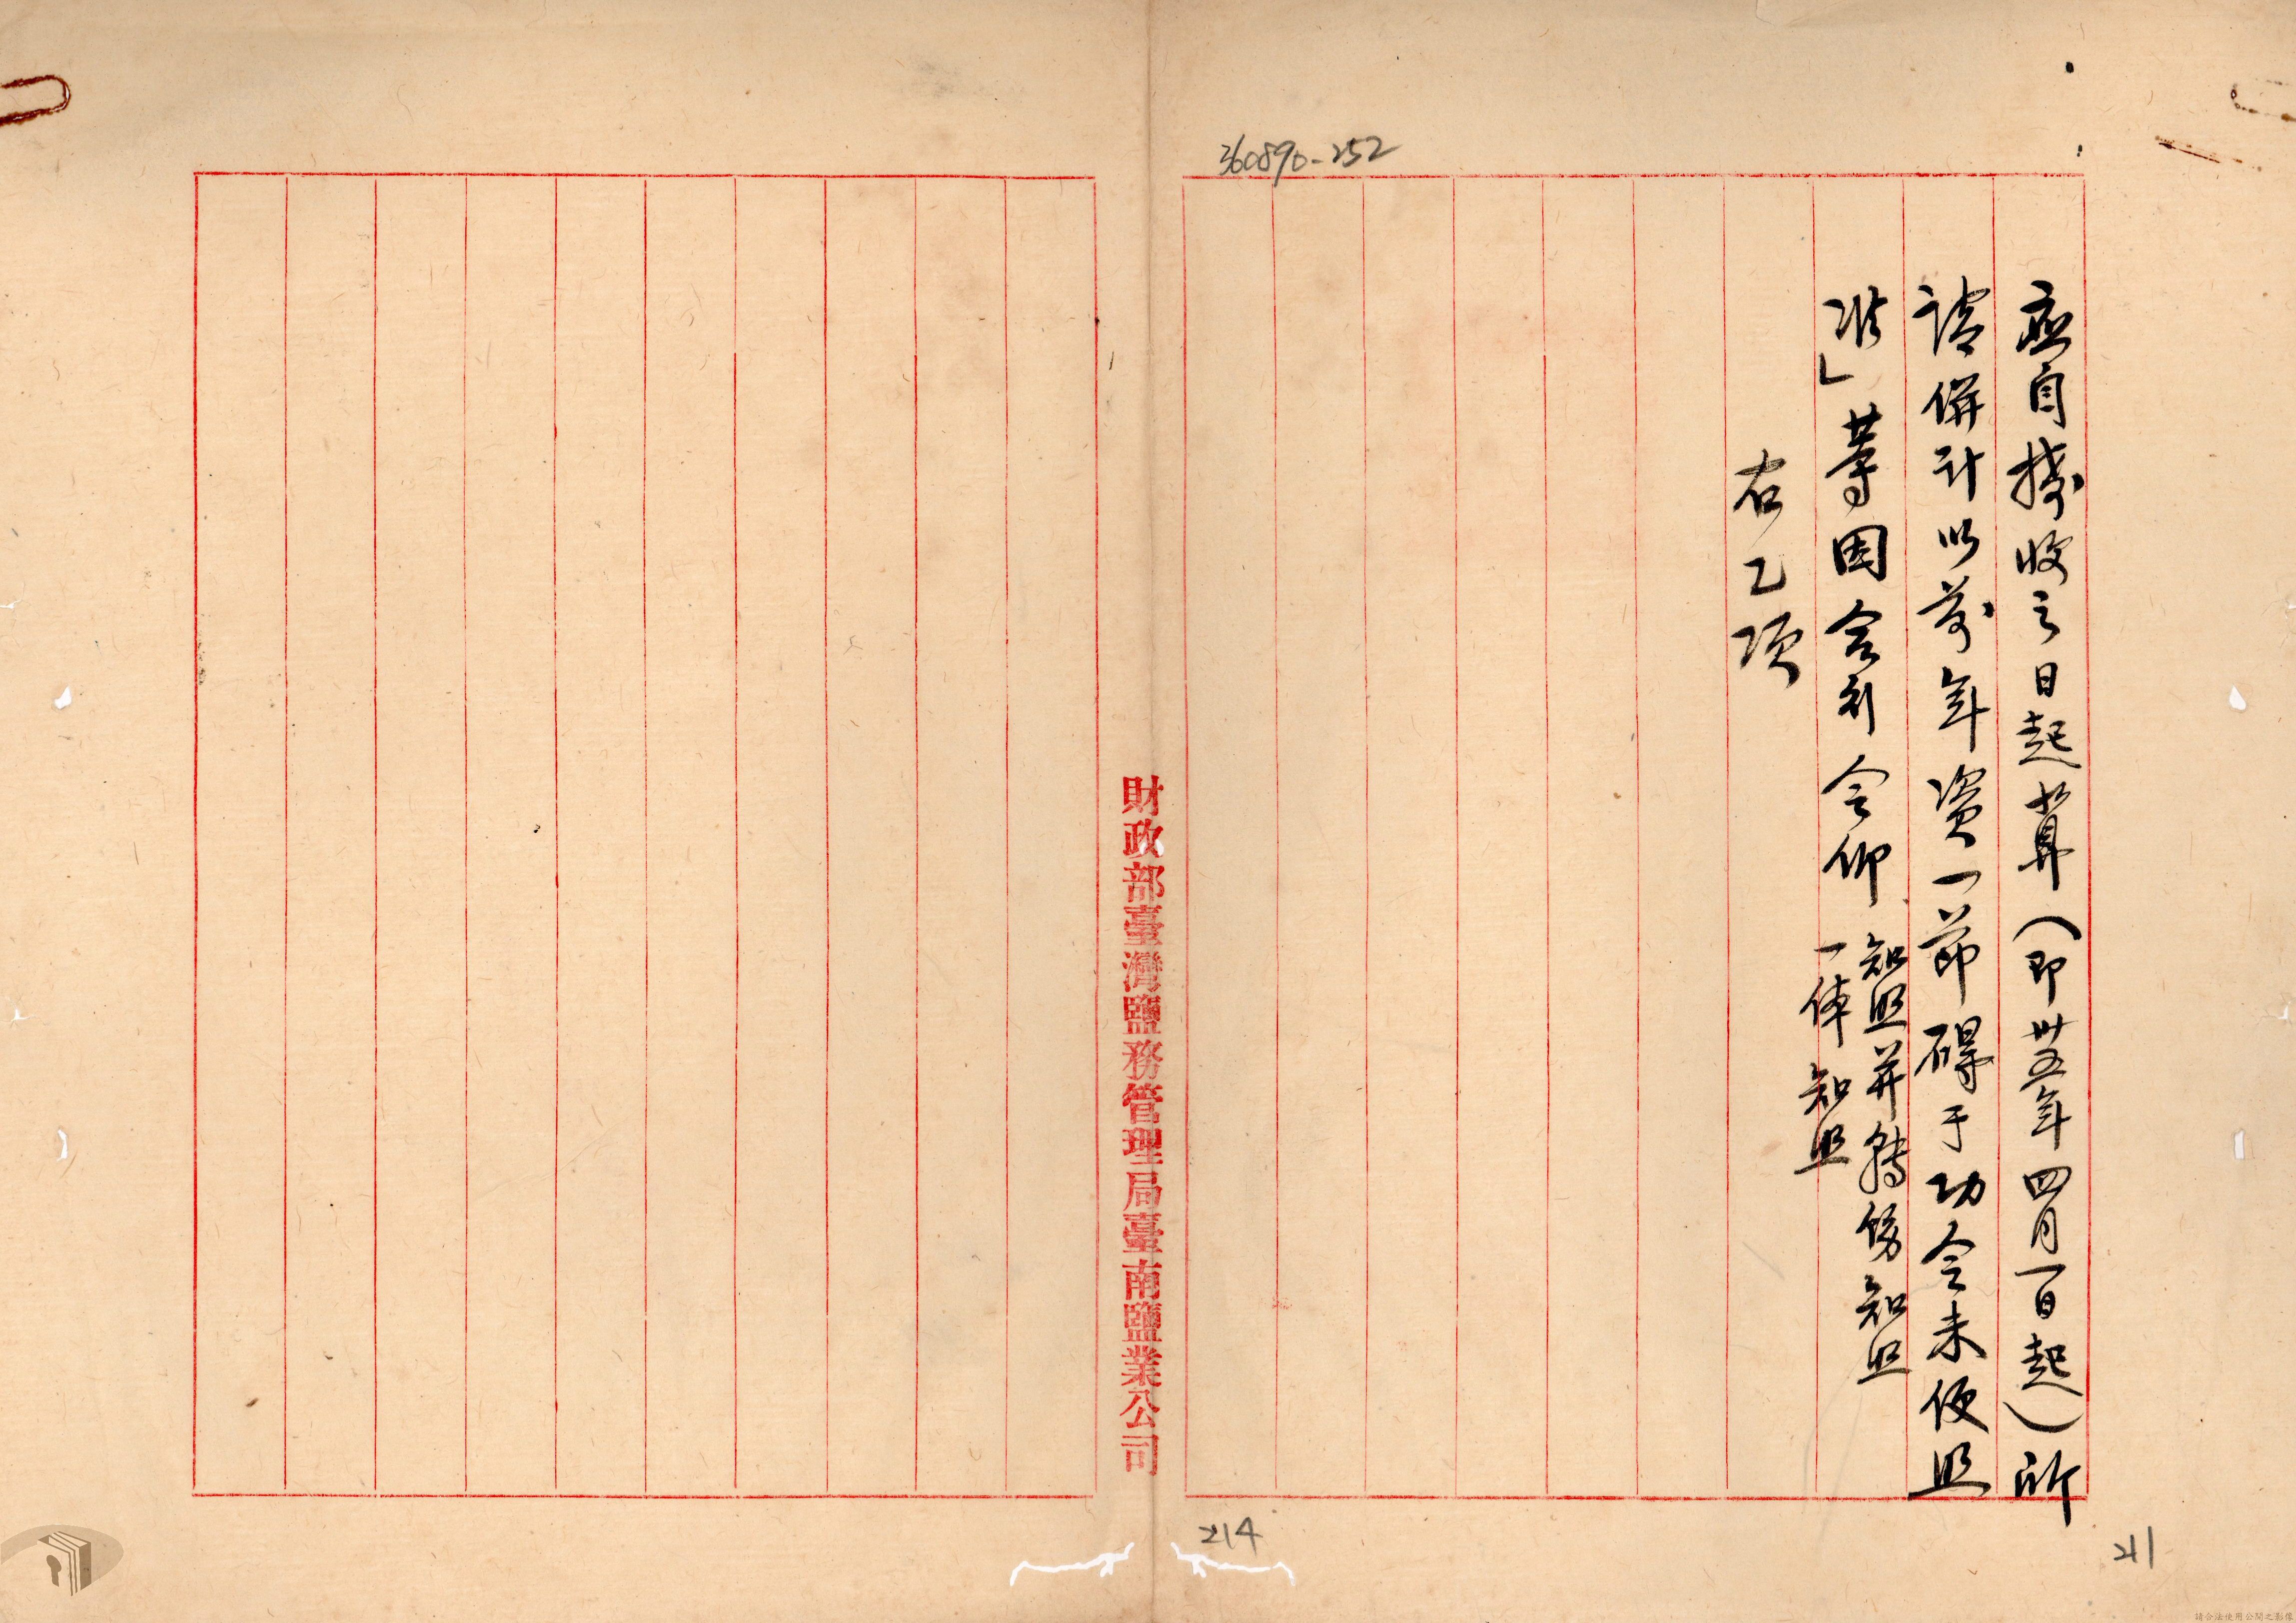 360890-252
應自接收之日起算（即卅五年四月一日起）所
請併計以前年資一節碍于功令未便照
准」等因合行令仰
知照并轉飭知照
一体知照
右乙項
財政部臺灣鹽務管理局臺南鹽業公司
214
211
請合法使用公開之影像